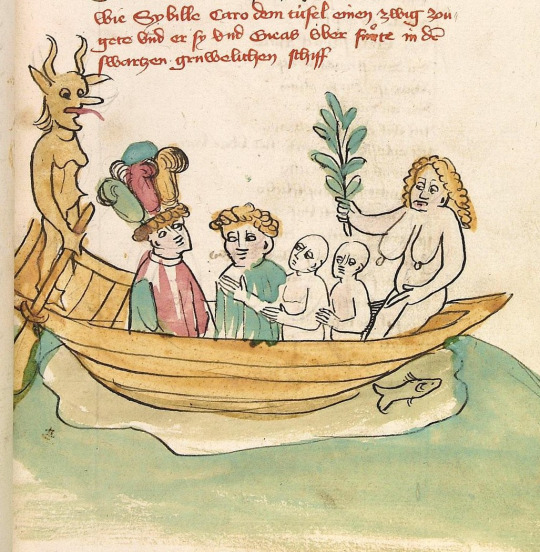 wie Sybille Caro dem tüfel einen zwig zou-
gete vnd er sy vnd Eneas über fuͦrte in dē
swartzen grüwelichen schiff